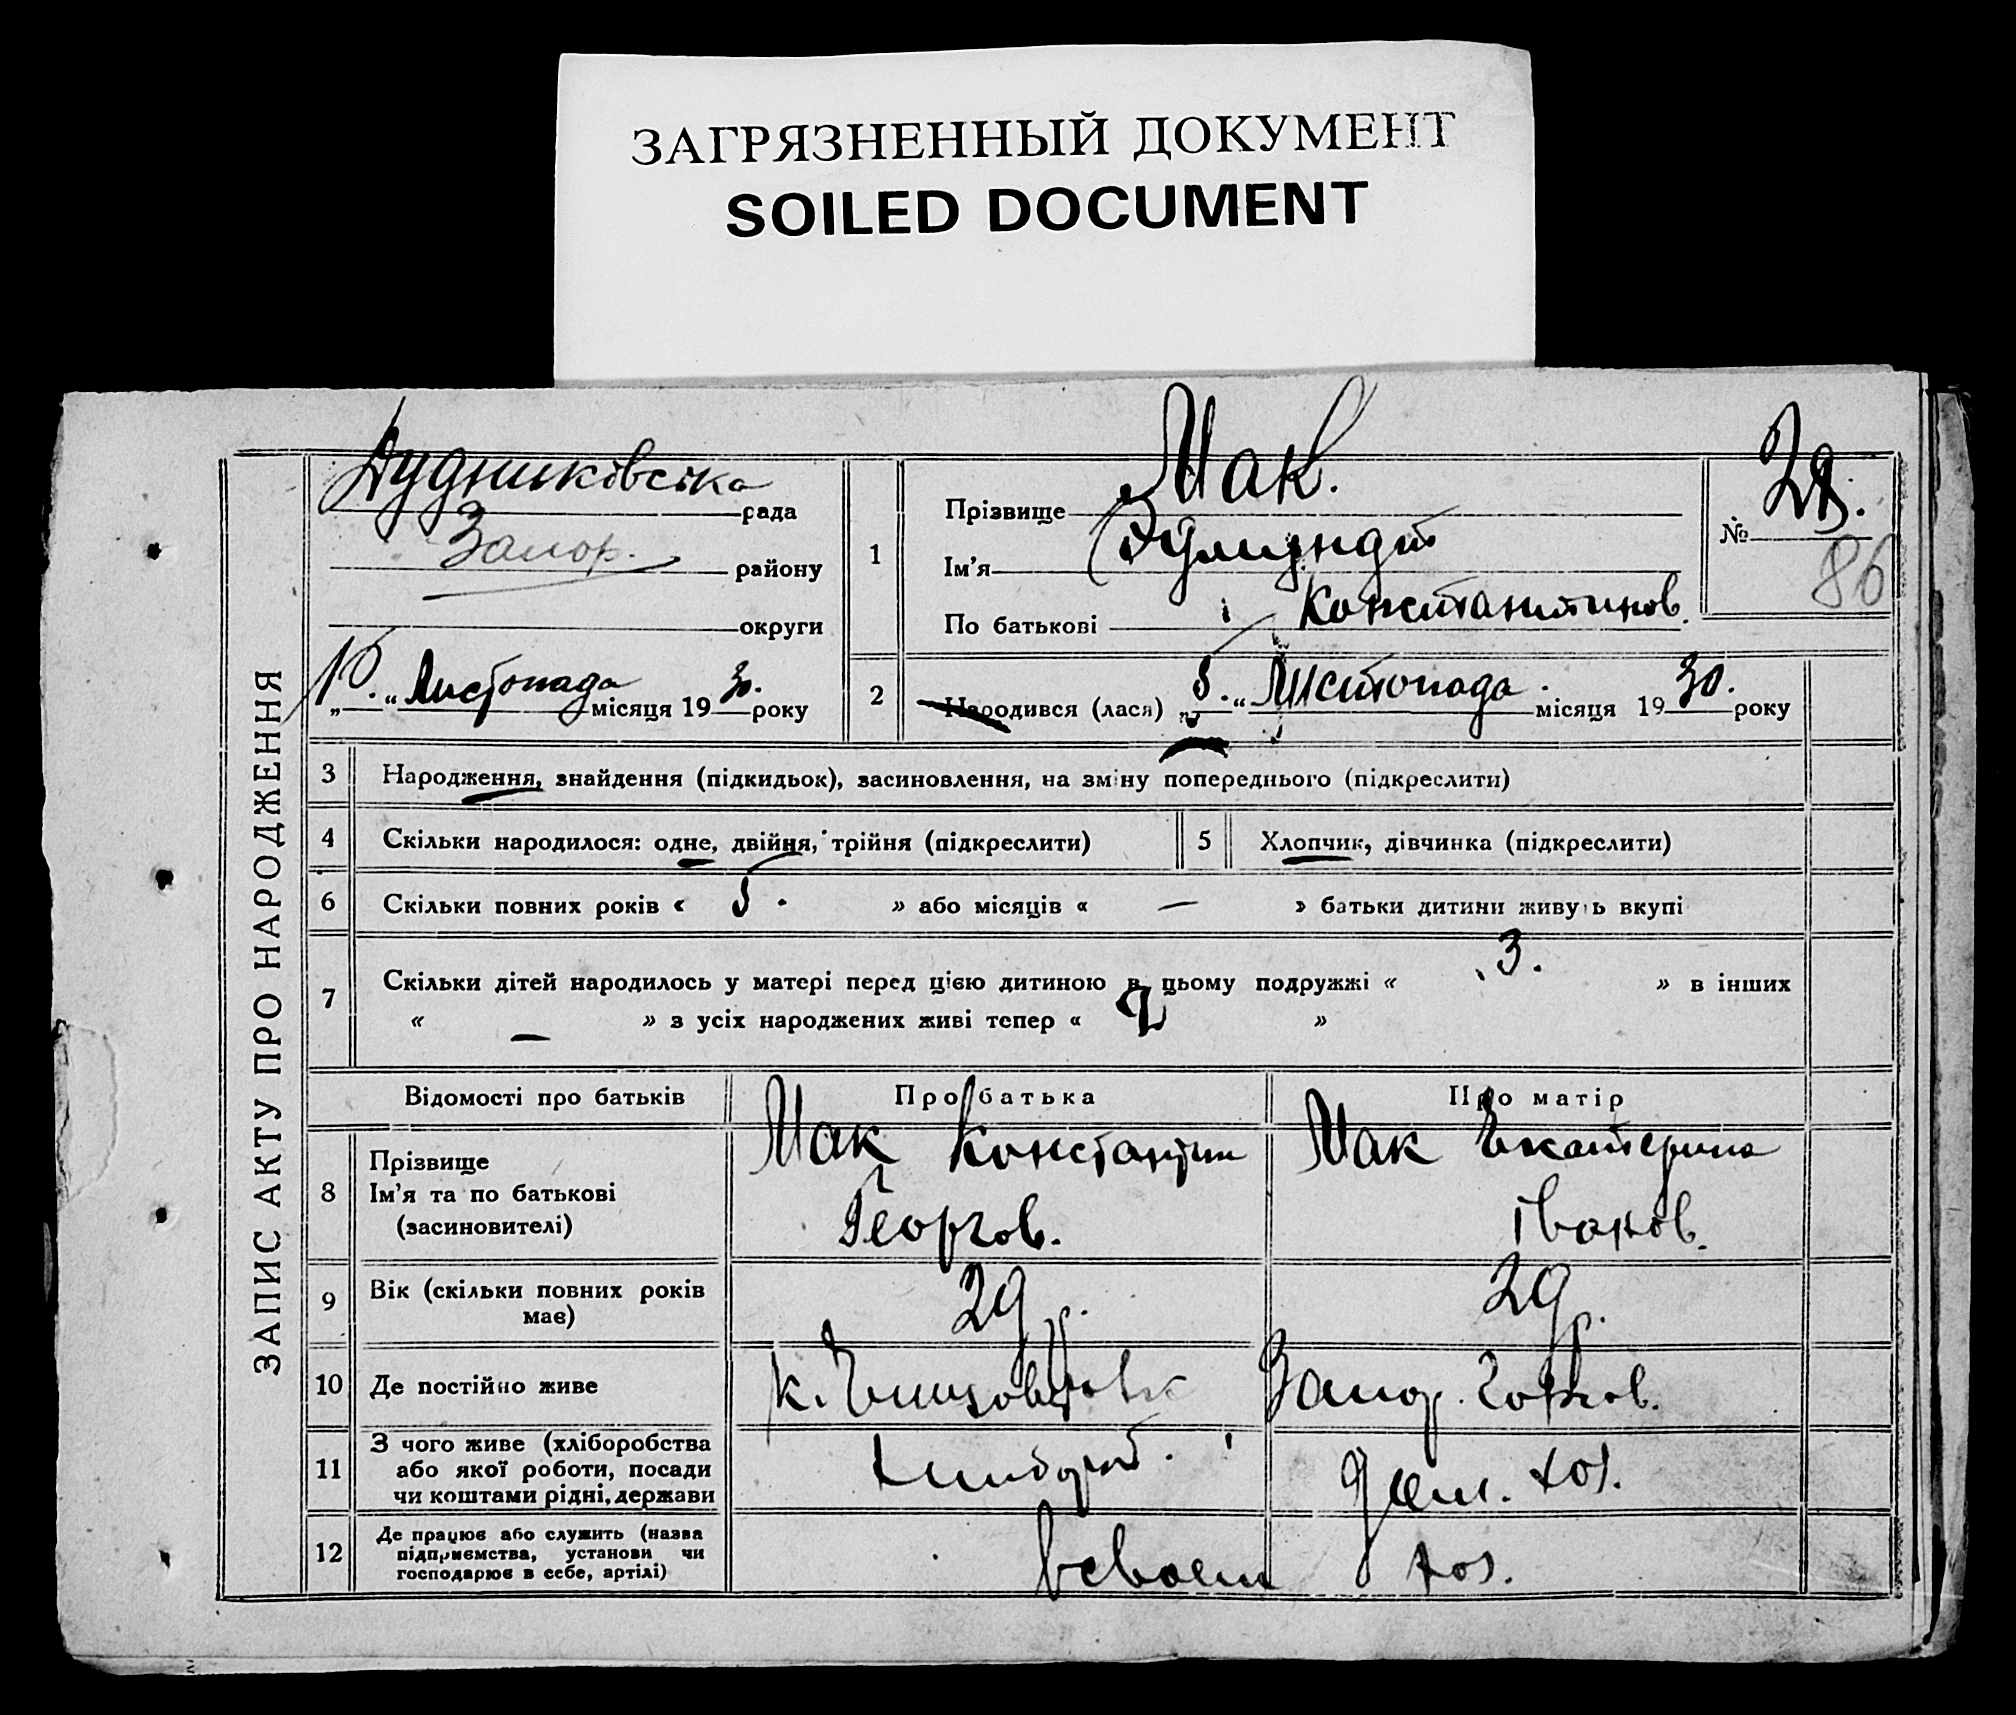 ЗАГРЯЗНЕННЫЙ ДОКУМЕНТ
SOILED DOCUMENT
ЗАПИС АКТУ ПРО НАРОДЖЕННЯ
рада
Запор. району
округи
„10.“ Листопада місяця 1930. року
1
Прізвище Мак.
Ім'я
По батькові Константинов.
№ 29.
86
2
Народився (лася) „5.“ Листопада місяця 1930. року
3 Народження, знайдення (підкидьок), засиновлення, на зміну попереднього (підкреслити)
4 Скільки народилося: одне, двійня, трійня (підкреслити) 5 Хлопчик, дівчинка (підкреслити)
6 Скільки повних років « 5. » або місяців « — » батьки дитини живуть вкупі
7 Скільки дітей народилось у матері перед цією дитиною в цьому подружжі « 3. » в інших
« — » з усіх народжених живі тепер « »
Відомості про батьків Про батька Про матір
8 Прізвище
Ім'я та по батькові
(засиновителі)
Мак Константин
Георгов.
Мак Екатерина
Іванов.
9 Вік (скільки повних років
має)
29 р.
29 р.
10 Де постійно живе
к. Запор.
11 З чого живе (хліборобства
або якої роботи, посади
чи коштами рідні, держави
12 Де працює або служить (назва
підприємства, установи чи
господарює в себе, артілі)
в своем хоз.